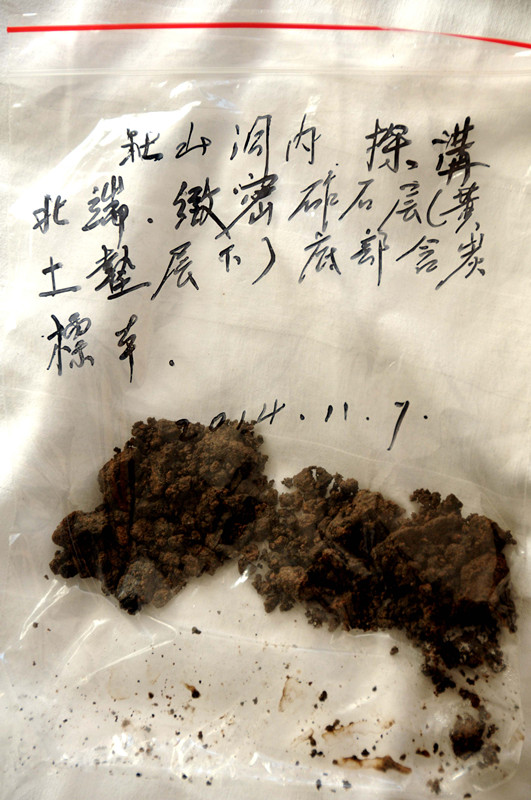 社山洞内.探溝
北端.緻密砟石层(黄
土墊层下)底部含炭
標本.
2014.11.7.